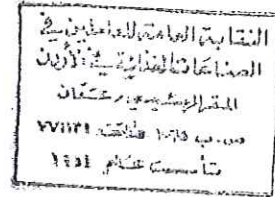 النقابة العامة للعاملين في
الصناعات الغذائية في الأردن
المقر الرئيسي / عمان
ص.ب ١٠٦٥ هاتف
تأسست عام